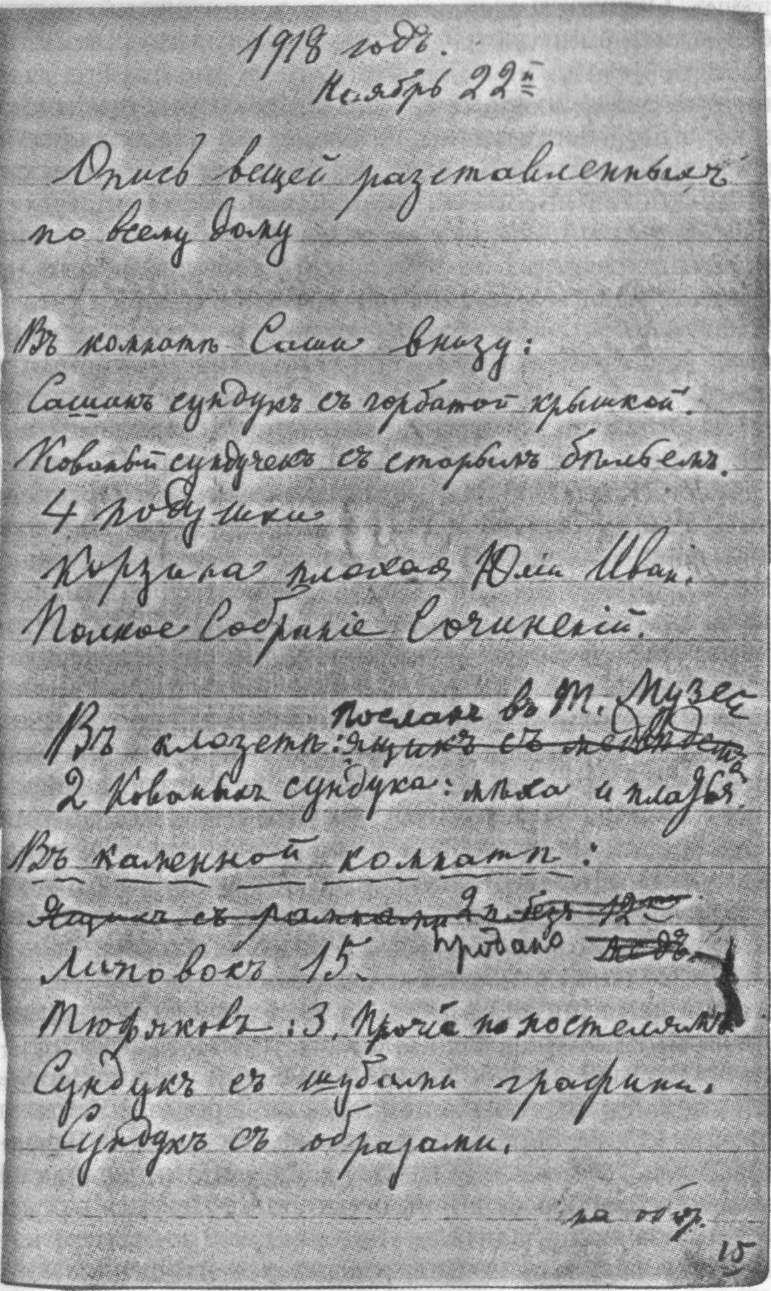 1918 годъ.
Ноябрь 22й
Опись вещей разставленныхъ
по всему дому
Въ комнатѣ Саши внизу:
Сашинъ сундукъ съ горбатой крышкой.
Кованый сундучекъ съ старымъ бѣльемъ.
4 подушки
Корзина плохая Юліи Иван.
Полное Собраніе Сочиненій.
Посланъ въ Т. Музей
Въ клозетѣ: ящикъ съ
2 Кованыхъ сундука: мѣха и платья.
Въ каменной комнатѣ:
Ящикъ съ рамками 2 п. безъ 12
продано медъ.
Липовокъ 15.
Тюфяковъ: 3, прочіе по постелямъ
Сундукъ съ шубами графини.
Сундукъ съ образами.
на обор.
15